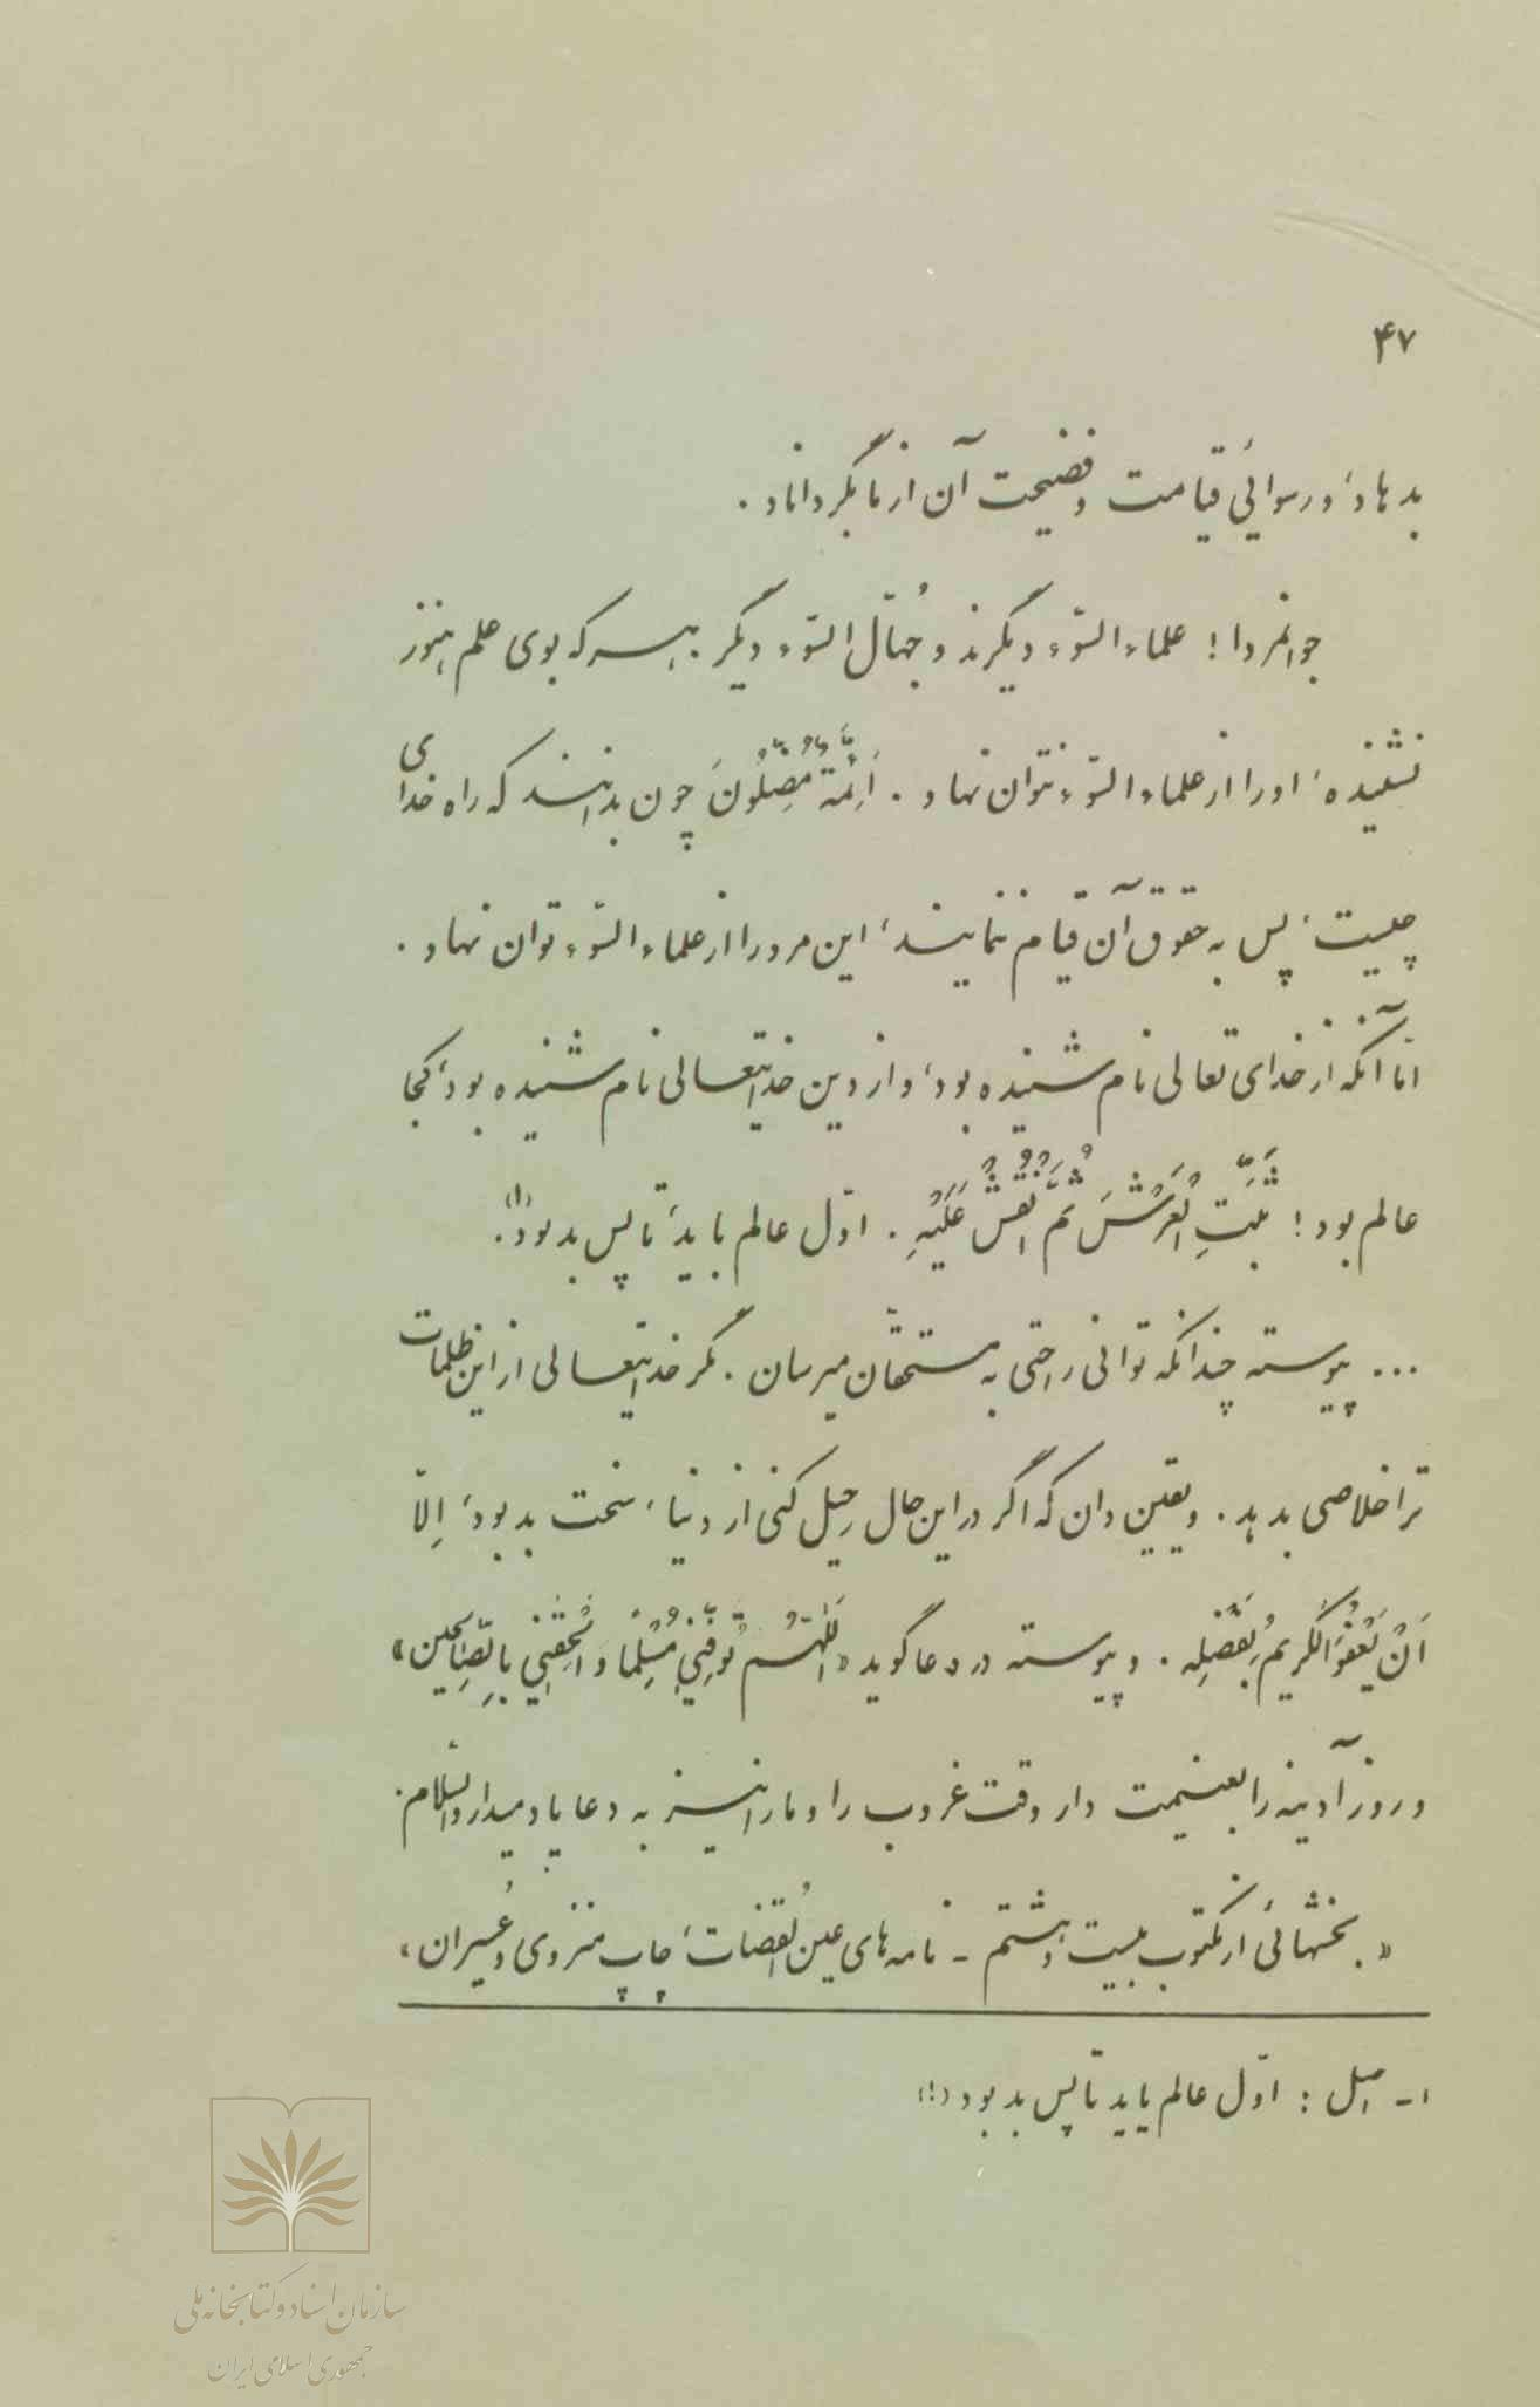 ۴۷
بدهاد، و رسوائی قیامت و فضیحت آن از ما بگرداناد.
جوانمردا! علماء السّوء دیگرند و جُهّال السّوء دیگر. هر که بوی علم هنوز
نشنیده، او را از علماء السّوء نتوان نهاد. اَئِمَّة مُضِلُّونَ چون بدانند که راه خدای
چیست، پس به حقوق آن قیام ننمایند، این مرد را از علماء السّوء توان نهاد.
امّا آنکه از خدای تعالی نام شنیده بود، و از دین خدایتعالی نام شنیده بود، کجا
عالم بود! ثَبِّتِ العَرْشَ ثُمَّ انْقُشْ عَلَیْهِ. اوّل عالم باید، تا پس بد بود(۱).
... پیوسته چندانکه توانی راحتی به مستحقّان میرسان. مگر خدایتعالی از این ظلمات
ترا خلاصی بدهد. و یقین دان که اگر در این حال رحیل کنی از دنیا، سخت بد بود، اِلّا
اَنْ یَعْفُوَ الْکَریمُ بِفَضْلِه. و پیوسته در دعا گوید «اَللّهُمَّ تَوَفَّنِی مُسْلِماً وَ اَلْحِقْنِی بِالصّالِحین»
و روز آدینه را بغنیمت دار وقت غروب را و ما را نیز به دعا یاد میدار والسّلام.
«بخشهائی از مکتوب بیست و هشتم - نامه‌های عین القضات، چاپ منزوی و عُسیران»
۱- اصل: اوّل عالم باید تا پس بد بود (!)
سازمان اسناد و کتابخانه ملی
جمهوری اسلامی ایران